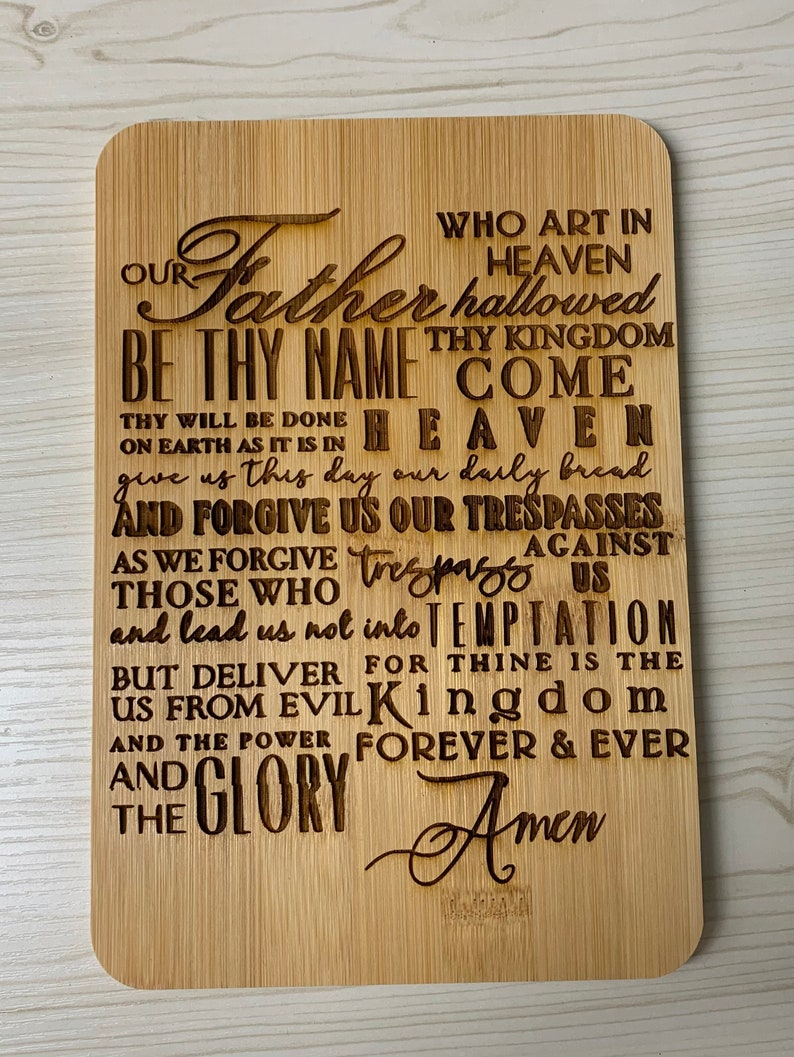 OUR Father WHO ART IN
HEAVEN
hallowed
BE THY NAME THY KINGDOM
COME
THY WILL BE DONE
ON EARTH AS IT IS IN HEAVEN
give us this day our daily bread
AND FORGIVE US OUR TRESPASSES
AS WE FORGIVE
THOSE WHO trespass AGAINST
US
and lead us not into TEMPTATION
BUT DELIVER
US FROM EVIL FOR THINE IS THE
Kingdom
AND THE POWER
AND
THE GLORY FOREVER & EVER
Amen